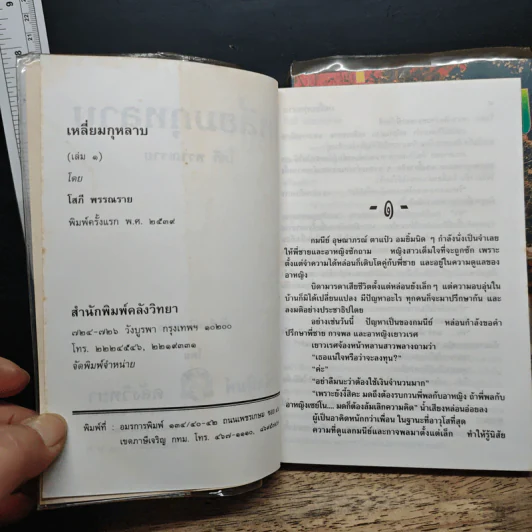 เหลี่ยมกุหลาบ
(เล่ม ๑)
โดย
โสภี พรรณราย
พิมพ์ครั้งแรก พ.ศ. ๒๕๓๙
สำนักพิมพ์คลังวิทยา
๗๒๔-๗๒๖ วังบูรพา กรุงเทพฯ ๑๐๒๐๐
โทร. ๒๒๒๔๕๔๖, ๒๒๑๙๓๓๑
จัดพิมพ์จำหน่าย
พิมพ์ที่ : อมรการพิมพ์ ๑๓๔/๔๐-๔๒ ถนนเพชรเกษม
เขตภาษีเจริญ กทม. โทร. ๔๖๗-๑๑๑๐,
- ๑ -
กมนีย์ อุษณาภรณ์ ตาแป๋ว อมยิ้มนิด ๆ กำลังนั่งเป็นจำเลย
ให้พี่ชายและอาหญิงซักถาม หญิงสาวเต็มใจที่จะถูกซัก เพราะ
ตั้งแต่จำความได้หล่อนก็เติบโตคู่กับพี่ชาย และอยู่ในความดูแลของ
อาหญิง
บิดามารดาเสียชีวิตตั้งแต่หล่อนยังเล็กๆ แต่ความอบอุ่นใน
บ้านก็มิได้เปลี่ยนแปลง มีปัญหาอะไร ทุกคนก็จะมาปรึกษากัน และ
ลงมติอย่างประชาธิปไตย
อย่างเช่นวันนี้ ปัญหาเป็นของกมนีย์ หล่อนกำลังขอคำ
ปรึกษาพี่ชาย กาจพล และอาหญิงเยาวเรศ
เยาวเรศจ้องหน้าหลานสาวพลางถามว่า
"เธอแน่ใจหรือว่าจะลงทุน?"
"ค่ะ"
"อย่าลืมนะว่าต้องใช้เงินจำนวนมาก"
"เพราะยังงี้สิคะ มดถึงต้องรบกวนพี่พลกับอาหญิง ถ้าพี่พลกับ
อาหญิงเซย์โน... มดก็ต้องล้มเลิกความคิด" น้ำเสียงหล่อนอ่อยลง
ผู้เป็นอาคิดหนักกว่าเพื่อน ในฐานะที่อาวุโสที่สุด
ความที่ดูแลกมนีย์และกาจพลมาตั้งแต่เล็ก ทำให้รู้นิสัย